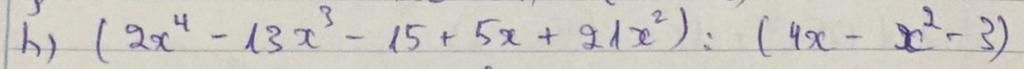 h) (2x⁴ - 13x³ - 15 + 5x + 21x²) : (4x - x² - 3)